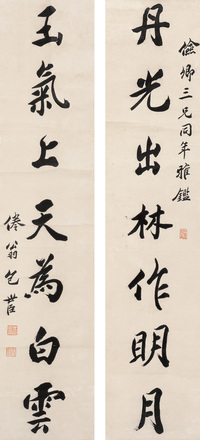 儉卿三兄同年雅鑑
丹光出林作明月
玉氣上天為白雲
倦翁包世臣